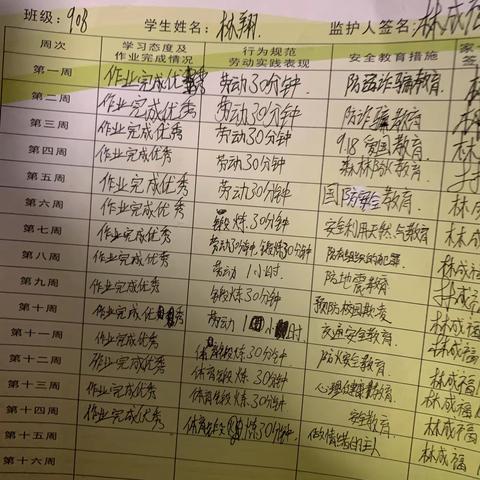 班级：908 学生姓名：林翔 监护人签名：林成福
周次 学习态度及作业完成情况 行为规范劳动实践表现 安全教育措施
第一周 作业完成优秀 劳动30分钟 防范诈骗教育.
第二周 作业完成优秀 劳动30分钟 防诈骗教育
第三周 作业完成优秀 劳动30分钟 9.18爱国教育. 林
第四周 作业完成优秀 劳动30分钟 森林防火教育. 林
第五周 作业完成优秀 劳动30分钟 国防安全教育.
第六周 作业完成优秀 锻炼30分钟 安全利用天然气教育 林成
第七周 作业完成优秀 劳动30分钟,锻炼30分钟 防有组织的犯罪. 林成
第八周 作业完成优秀 劳动1小时. 防地震教育 林成福
第九周 作业完成优秀 锻炼30分钟 预防校园欺凌 林成
第十周 作业完成优秀 劳动1小时. 交通安全教育. 林成福
第十一周 作业完成优秀 体育锻炼30分钟 防火安全教育. 林成福
第十二周 作业完成优秀 体育锻炼30分钟 心理健康教育. 林成福
第十三周 作业完成优秀 体育锻炼30分钟 安全教育. 林成福
第十四周 作业完成优秀 体育锻炼30分钟. 做情绪的主人 林成福
第十五周 林成福
第十六周